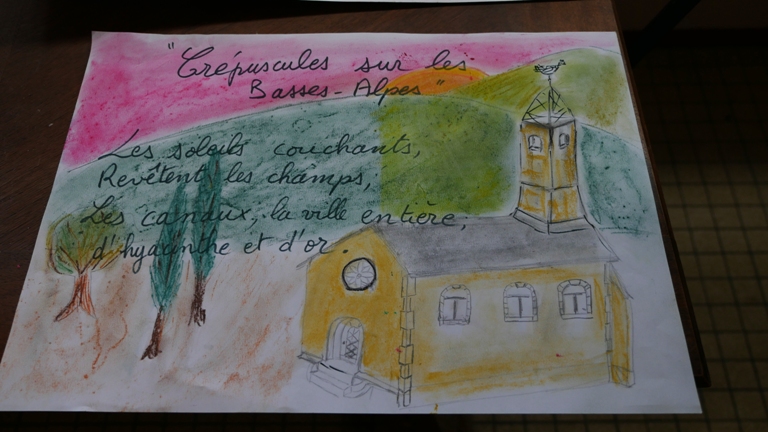 "Crépuscules sur les
Basses-Alpes"
Les soleils couchants,
Revêtent les champs,
Les canaux, la ville entière,
d'hyacinthe et d'or.